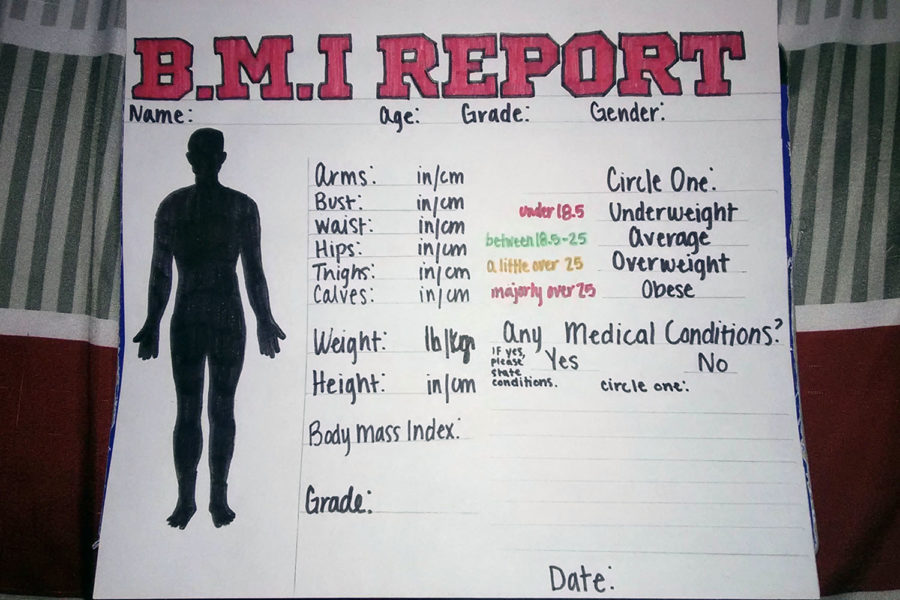 B.M.I REPORT
Name: Age: Grade: Gender:
Arms: in/cm
Bust: in/cm
Waist: in/cm
Hips: in/cm
Thighs: in/cm
Calves: in/cm
Circle One:
under 18.5 Underweight
between 18.5-25 Average
a little over 25 Overweight
majorly over 25 Obese
Weight: lb/kgn
Height: in/cm
Any Medical Conditions?
If yes, please state conditions.
Yes No
circle one:
Body Mass Index:
Grade:
Date: